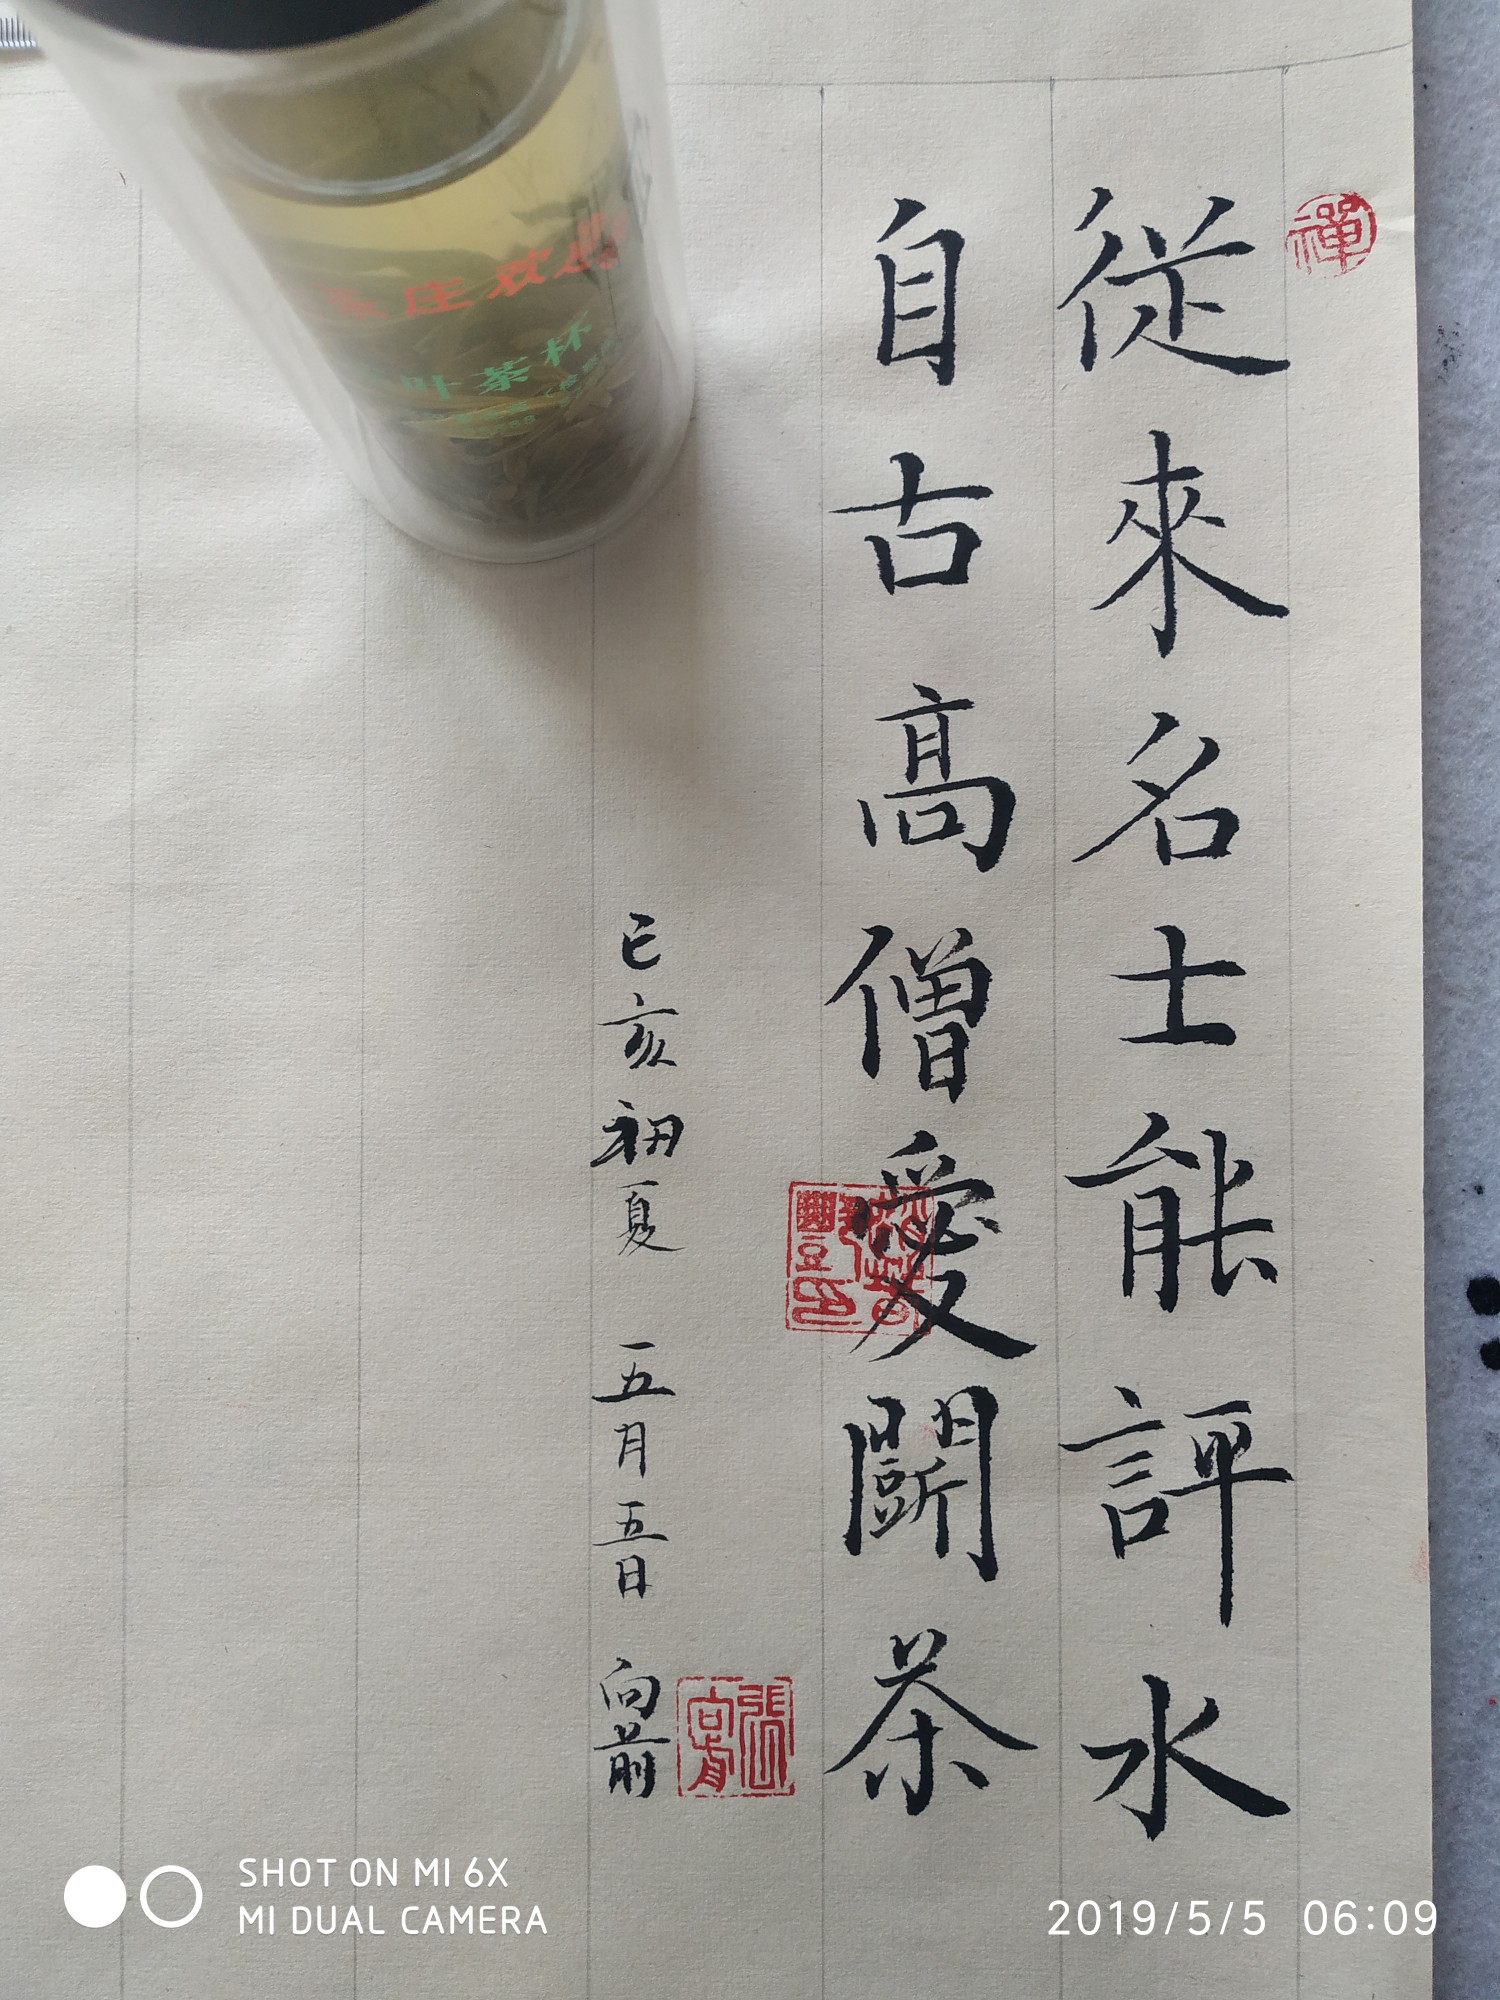 從來名士能評水
自古高僧愛鬭茶
己亥初夏 五月五日 向前
禪
張向前
庄欢
叶茶杯
SHOT ON MI 6X
MI DUAL CAMERA
2019/5/5 06:09